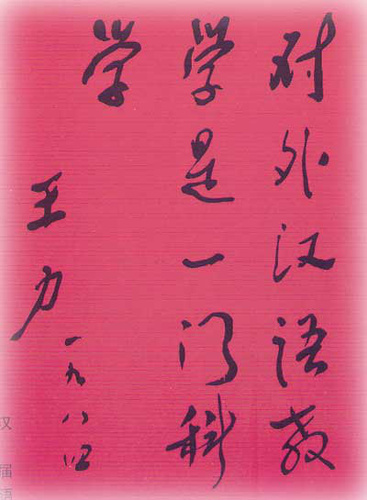 对外汉语教
学是一门科
学
王力
一九八四
汉
届